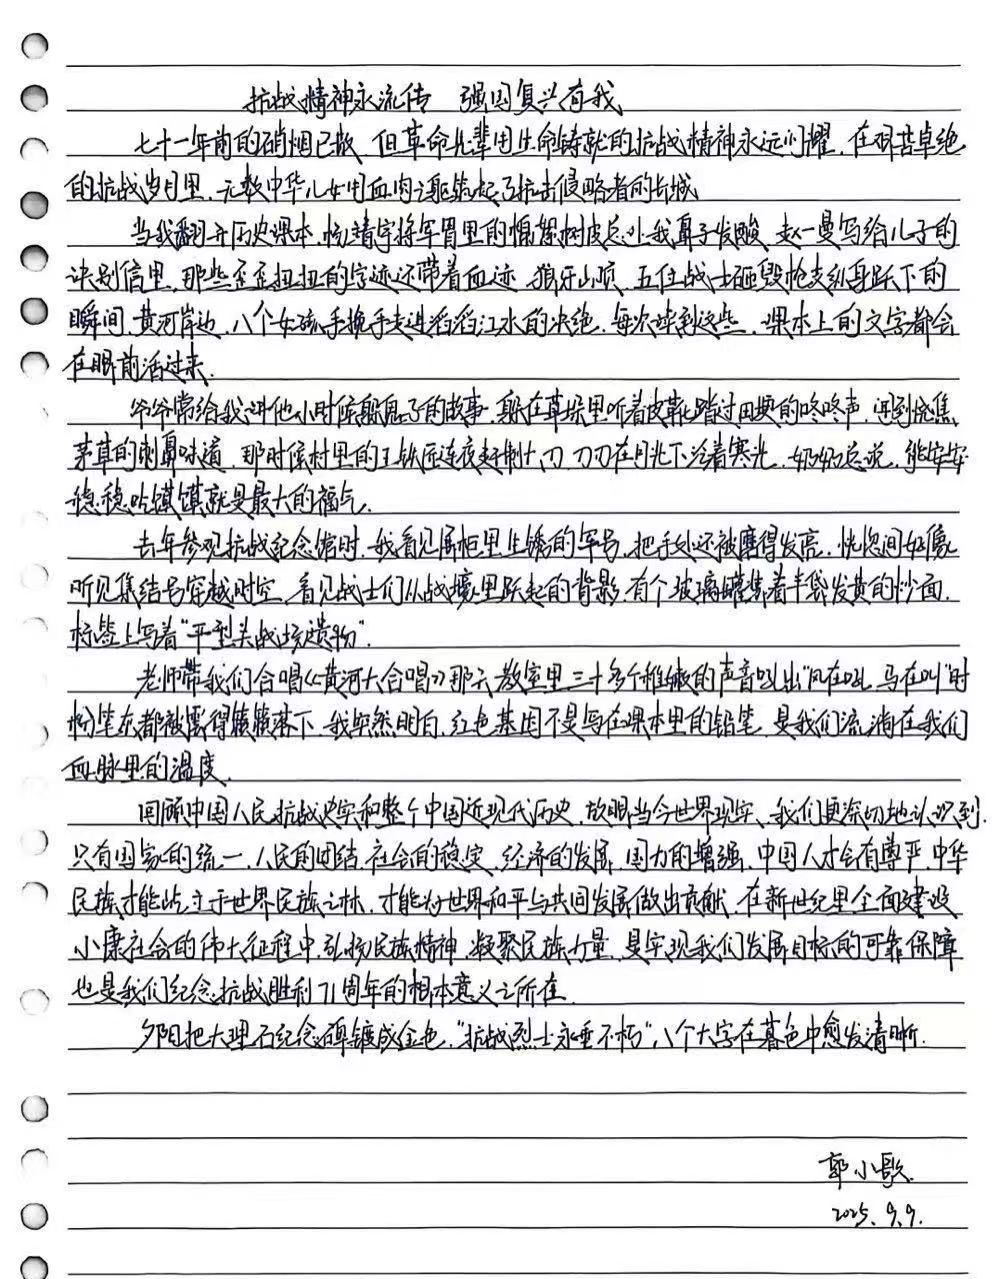 抗战精神永流传 强国复兴有我
七十一年前的硝烟已散,但革命先辈用生命铸就的抗战精神永远闪耀,在艰苦卓绝
的抗战岁月里,无数中华儿女用血肉之躯筑起了抗击侵略者的长城
当我翻开历史课本,杨靖宇将军胃里的棉絮树皮总让我鼻子发酸,赵一曼写给儿子的
诀别信里,那些歪歪扭扭的字迹还带着血迹,狼牙山顶,五位战士砸毁枪支纵身跃下的
瞬间,黄河岸边,八个女孩手挽手走进滔滔江水的决绝,每次读到这些,课本上的文字都会
在眼前活过来.
爷爷常给我讲他小时候躲鬼子的故事,躲在草垛里听着皮靴踏过田埂的咚咚声,闻到烧焦
茅草的刺鼻味道,那时候村里的王铁匠连夜赶制大刀,刀刃在月光下泛着寒光,奶奶总说,能安安
稳稳吃馍馍就是最大的福气.
去年参观抗战纪念馆时,我看见展柜里生锈的军号,把手处还被磨得发亮,恍惚间好像
听见集结号穿越时空,看见战士们从战壕里跃起的背影,有个玻璃罐装着半袋发黄的炒面,
标签上写着"平型关战场遗物".
老师带我们合唱《黄河大合唱》那天,教室里三十多个稚嫩的声音吼出"风在吼,马在叫"时
粉笔灰都被震得簌簌落下,我突然明白,红色基因不是写在课本里的铅笔,是我们流淌在我们
血脉里的温度.
回顾中国人民抗战史实和整个中国近现代历史,放眼当今世界现实,我们更深切地认识到.
只有国家的统一,人民的团结,社会的稳定,经济的发展,国力的增强,中国人才会有尊严,中华
民族才能屹立于世界民族之林,才能为世界和平与共同发展做出贡献,在新世纪里全面建设
小康社会的伟大征程中,弘扬民族精神,凝聚民族力量,是实现我们发展目标的可靠保障
也是我们纪念抗战胜利71周年的根本意义之所在.
夕阳把大理石纪念碑镀成金色,"抗战烈士永垂不朽",八个大字在暮色中愈发清晰.
郭小歌
2025.9.9.